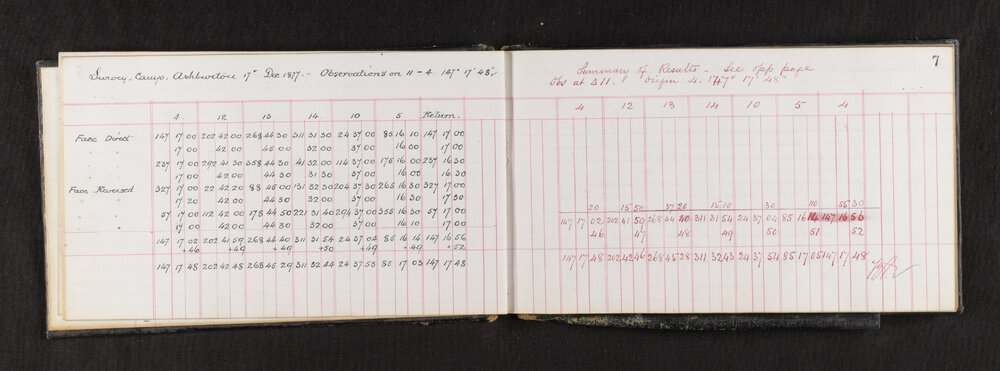 Survey Camp. Ashburton 17" Dec 1877. - Observations on 11 - 4 147° 17' 48"
4. 12 13 14. 10 5 Return.
Face Direct 147 17 00 202 42 00 268 44 30 311 31 30 24 37 00 85 16 10 147 17 00
" " 17 00 42 00 45 00 32 00 37 00 16 00 17 00
237 17 00 292 41 30 358 44 30 41 32 00 114 37 00 175 16 00 237 16 30
" " 17 00 42 00 44 30 31 00 37 00 16 00 16 30
Face Reversed 327 17 00 22 42 20 88 45 00 131 32 30 204 37 30 265 16 30 327 17 00
" " 17 20 42 00 44 30 32 00 37 00 16 30 17 30
57 17 00 112 42 00 178 44 50 221 31 40 294 37 00 355 16 30 57 17 00
" " 17 00 42 00 44 30 32 00 37 00 16 10 17 00
147 17 02 202 41 59 268 44 40 311 31 54 24 37 04 85 16 14 147 16 56
+46 +49 +49 +50 +49 +49 +52
147 17 48 202 42 48 268 45 29 311 32 44 24 37 53 85 17 03 147 17 48
7
Summary of Results - See opp page
Obs at Δ11. Origin 4. 147° 17' 48"
4 12 13 14 10 5 4
20 15 50 37 20 15 10 30 110 55 30
147 17 02 202 41 59 268 44 40 311 31 54 24 37 04 85 16 14 147 16 56
46 47 48 49 50 51 52
147 17 48 202 42 46 268 45 28 311 32 43 24 37 54 85 17 05 147 17 48